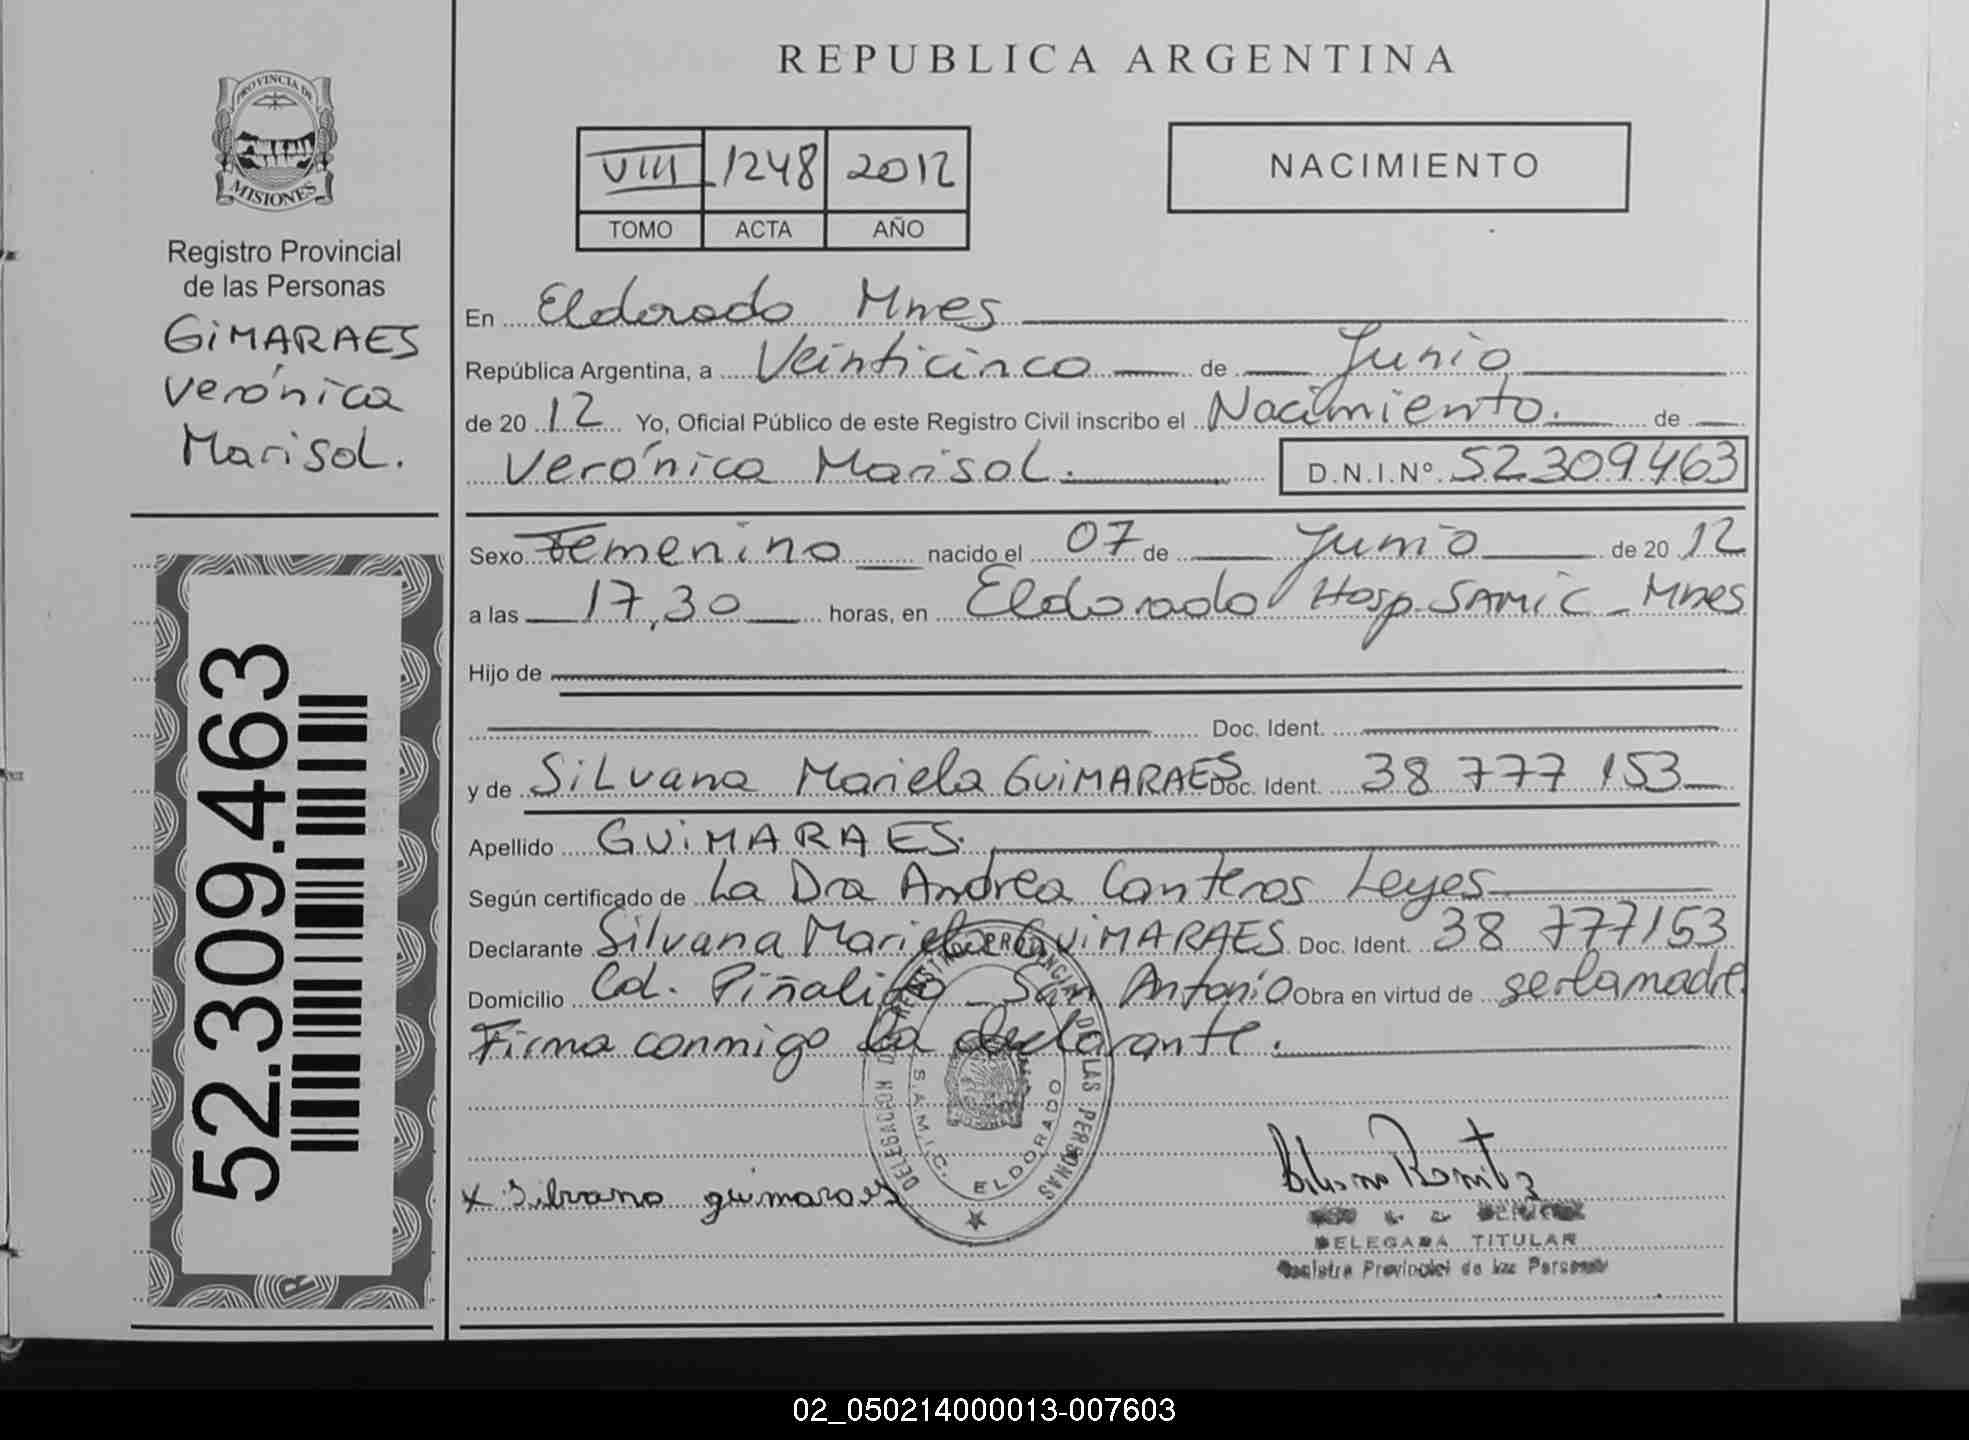 REPUBLICA ARGENTINA
PROVINCIA DE
MISIONES
Registro Provincial
de las Personas
GiMARAES
Verónica
Marisol.
52.309.463
VIII 1248 2012
TOMO ACTA AÑO
NACIMIENTO
En Eldorado Mnes
República Argentina, a Veinticinco de Junio
de 2012 Yo, Oficial Público de este Registro Civil inscribo el Nacimiento. de
Verónica Marisol. D.N.I.Nº 52309463
Sexo Femenino nacido el 07 de Junio de 2012
a las 17,30 horas, en Eldorado Hosp. SAMIC - Mnes
Hijo de
Doc. Ident.
y de Silvana Mariela GUiMARAES Doc. Ident. 38 777 153
Apellido GUiMARAES.
Según certificado de La Dra Andrea Canteros Leyes
Declarante Silvana Mariela GUiMARAES Doc. Ident. 38 777153
Domicilio Col. Piñalito - San Antonio Obra en virtud de ser la madre.
Firma conmigo la declarante.
REGISTRO PROVINCIAL DE LAS PERSONAS
DELEGACION
S.A.M.I.C. ELDORADO
x Silvana guimaraes
DELEGADA TITULAR
Registro Provincial de las Personas
02_050214000013-007603